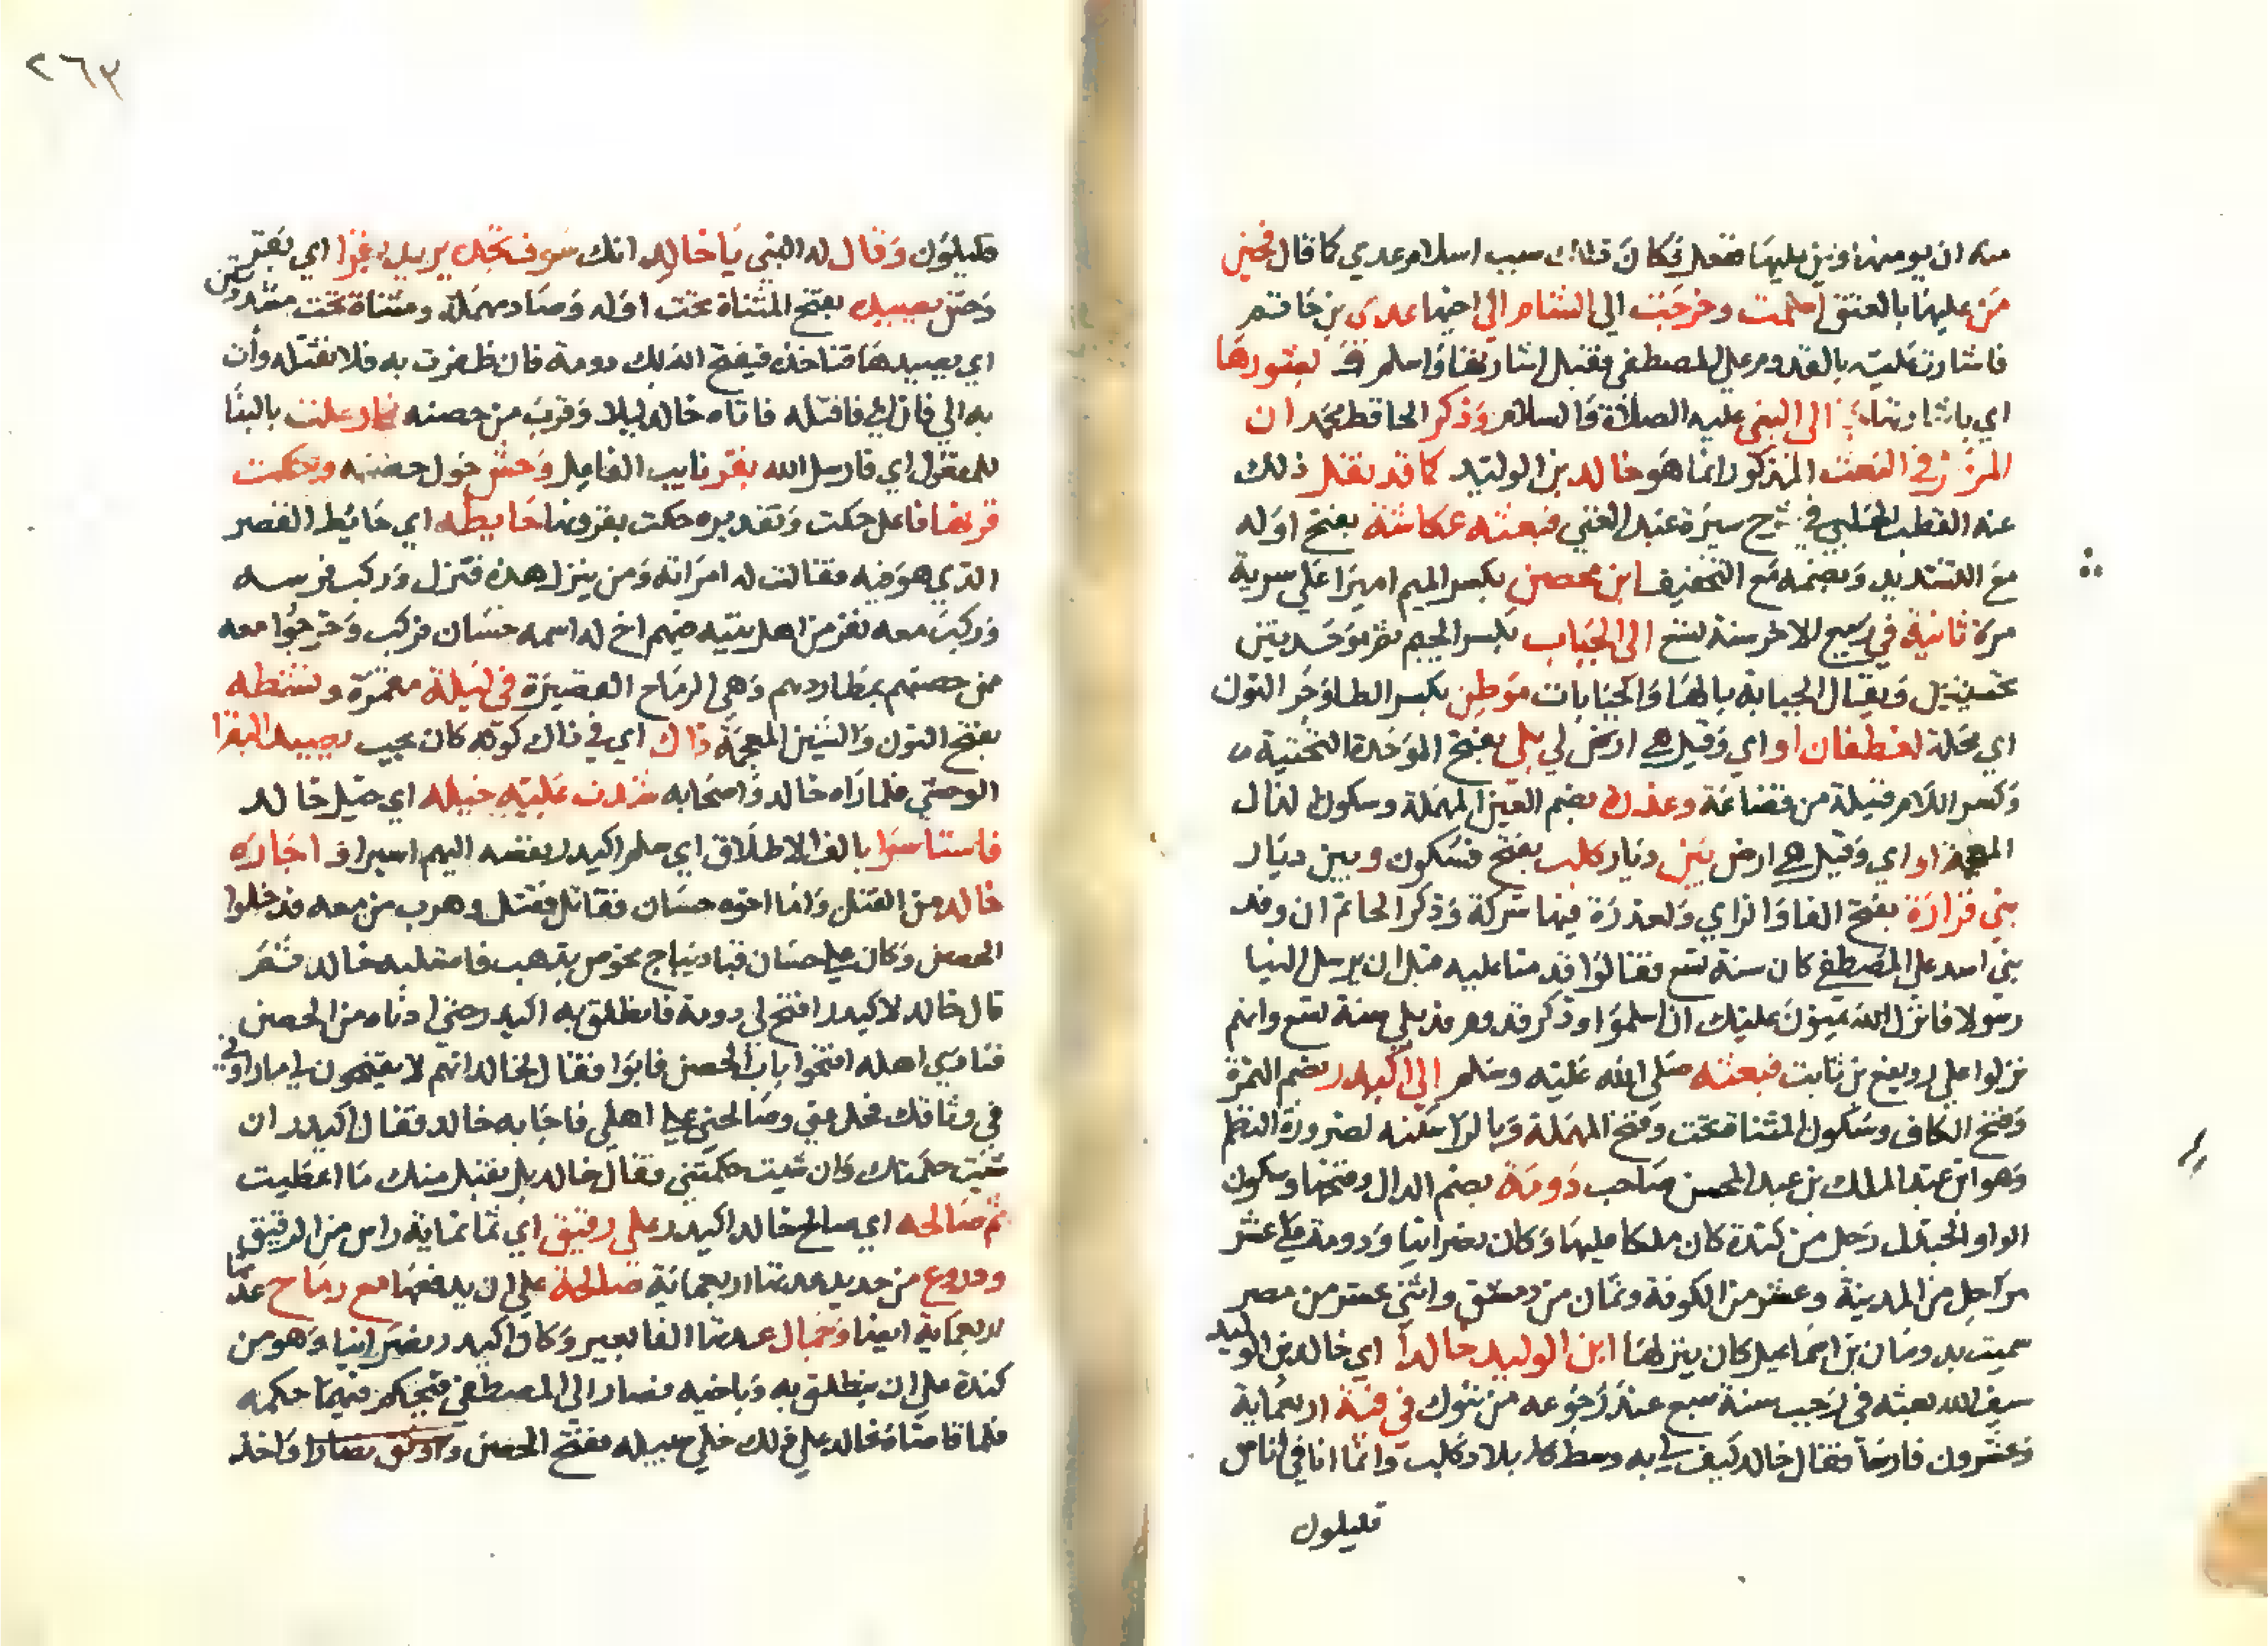 منه ان يومنها ويمن عليها ففعل فكان ذلك سبب اسلام عدي كما قال فحين
من عليها بالعتق اسلمت وخرجت الي الشام الي اخيها عدي بن حاتم
فاشارت عليه بالقدوم علي المصطفى فقبل اشارتها واسلم بعثورها
اي باشارتها الى النبي عليه الصلاة والسلام وذكر الحافظ محمد ان
المر في البعث المذكور انما هو خالد بن الوليد كما قد نقل ذلك
عنه القطب الحلبي في شرح سيرة عبد الغني فبعثه عكاشة بفتح اوله
مع التشديد وبضمه مع التخفيف ابن محصن بكسر الميم اميرا علي سرية
مرة ثانية في ربيع الاخر سنة تسع الى الجباب بكسر الجيم ثم موحدتين
خفيفتين ويقال الجبابة بالها والجنابات موطن بكسر الطا وجر النون
اي محلة لغطفان او اي وقيل هي ارض لي بلي بفتح الموحدة التحتية
وكسر اللام قبيلة من قضاعة وعذرة بضم العين المهملة وسكون الذال
المعجمة او اي وقيل هي ارض بين ديار كلب بفتح فسكون وبين ديار
بني فزارة بفتح الفا والزاي ولعذرة فيها شركة وذكر الحاتم ان وفد
بني اسد علي المصطفى كان سنة تسع فقالوا قدمنا عليه قبل ان يرسل الينا
رسولا فانزل الله يمنون عليك ان اسلموا وذكر قدوم وفد بلي سنة تسع وانهم
نزلوا علي رويفع بن ثابت فبعثه صلى الله عليه وسلم الى اكيدر بضم الهمزة
وفتح الكاف وسكون المثناة تحت وفتح المهملة وبالرا سكنه لضرورة النظم
وهو ابن عبد الملك بن عبد المحسن صاحب دومة بضم الدال وفتحها وسكون
الواو الجندل رجل من كندة كان ملكا عليها وكان نصرانيا ودومة علي عشر
مراحل من المدينة وعشر من الكوفة وثمان من دمشق واثني عشر من مصر
سميت بدومان بن اسماعيل كان ينزلها ابن الوليد خالدا اي خالد بن الوليد
سيف الله بعثه في رجب سنة سبع عند رجوعه من تبوك في فئة اربعماية
وعشرون فارسا فقال خالد كيف لي به وسط كل بلاد كلب وانما انا في اناس
قليلون
٢٦٣
قليلون وقال له النبي يا خالد انك سوف تجده يريد بغزا اي بقر
وحش يصيده بفتح المثناة تحت اوله وصاد مهملة ومثناة تحت مشددتين
اي يصيدها فتاخذه فيفتح الله لك دومة فان ظفرت به فلا تقتله وأت
به الي فان ابي فاقتله فاتاه خالد ليلا وقرب من حصنه فارسلت بالبنا
للمفعول اي فارسل الله بقر نايب الفاعل وحش حول حصنه وحكت
قرنها فاعل حكت وتقديره حكت بقرونها حايطه اي حايط القصر
الذي هو فيه فقالت له امراته ومن ينزل هذه فنزل وركب فرسه
وركب معه نفر من اهل بيته فيهم اخ له اسمه حسان فركب وخرجوا معه
من حصنهم بمطاردهم وهي الرماح القصيرة في ليلة مقمرة ونشطه
بفتح النون والشين المعجمة ذاك اي في ذاك كونه كان يحب يصيد البقرا
الوحشي فلما راه خالد واصحابه شدت عليه خيله اي خيل خالد
فاستاسرا بالف الاطلاق اي سلم اكيدر نفسه اليهم اسيرا واجاره
خالد من القتل واما اخوه حسان فقاتل فقتل وهرب من معه فدخلوا
الحصن وكان علي حسان قبا ديباج مخوص بذهب فاستلبه خالد ثم
قال خالد لاكيدر افتح لي دومة فانطلق به اكيدر حتى ادناه من الحصن
فنادي اهله افتحوا باب الحصن فابوا فقال لخالد انهم لا يفتحون لي ما راوني
في وثاقك فخل عني وصالحني علي اهلي فاجابه خالد فقال اكيدر ان
شيت حكمتك وان شيت حكمتني فقال خالد بل نقبل منك ما اعطيت
ثم صالحه اي صالح خالد اكيدر علي رقيق اي ثمانماية راس من الرقيق
ودروع من حديد عدتها اربعماية صالحه علي ان يدفعها مع رماح عدتها
اربعماية ايضا وجمال عدتها الفا بعير وكان اكيدر نصرانيا وهو من
كندة علي ان ينطلق به وباخيه فسار الى المصطفى فيحكم فيهما حكمه
فلما قاضاه خالد علي ذلك خلي سبيله ففتح الحصن واوثق مصادا واخذ